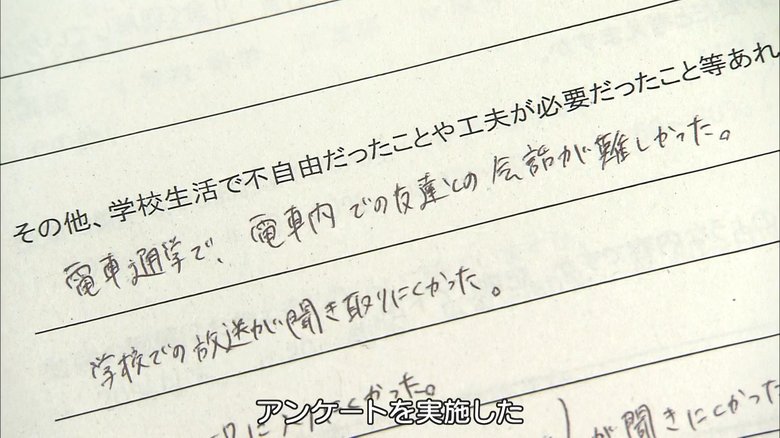 その他、学校生活で不自由だったことや工夫が必要だったこと等あれ
電車通学で、電車内での友達との会話が難しかった。
学校での放送が聞き取りにくかった。
くかった。
が聞きにくかった
アンケートを実施した